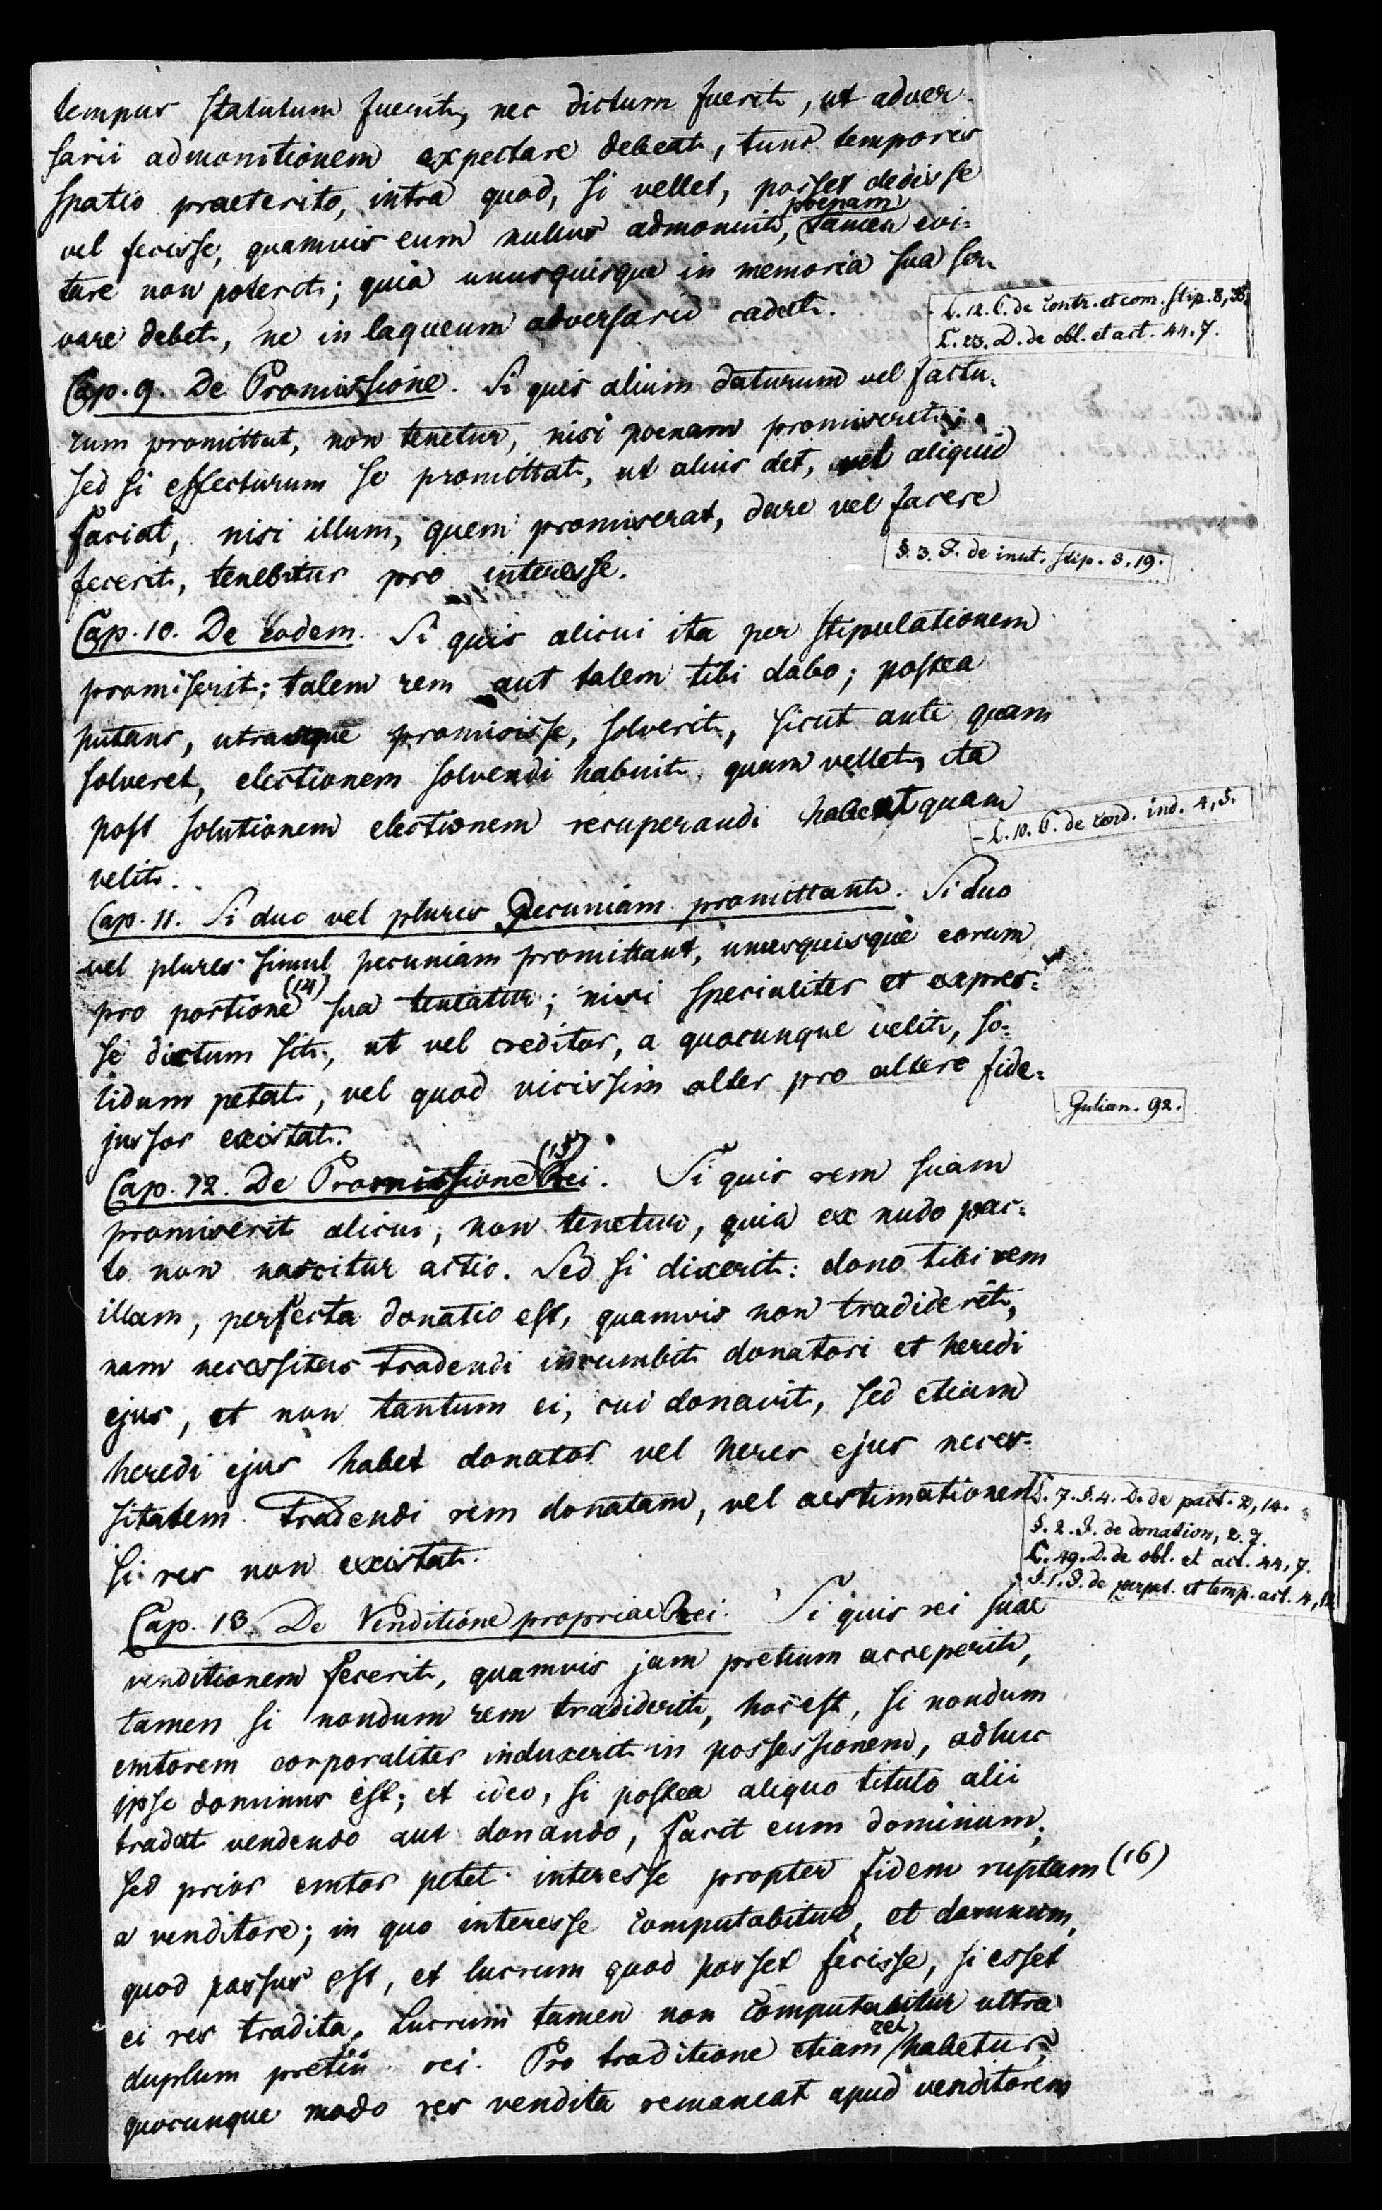 tempus statutum fuerit, nec dictum fuerit, ut adver-
sarii admonitionem expectare debeat, tunc temporis
spatio praeterito, intra quod, si vellet, posset dedisse
vel fecisse, quamvis eum nullus admonuit, poenam tamen evi-
tare non poterit; quia unusquisque in memoria sua ser-
vare debet, ne in laqueum adversarii cadat.
L. 12. C. de contr. et com. stip. 8, 38,
L. 23. D. de obl. et act. 44. 7.
Cap. 9. De Promissione. Si quis alium daturum vel factu-
rum promittat, non tenetur, nisi poenam promiserit;
sed si effecturum se promittat, ut alius det, vel aliquid
faciat, nisi illum, quem promiserat, dare vel facere
fecerit, tenebitur pro interesse.
§. 3. J. de inut. stip. 3. 19.
Cap. 10. De Eodem. Si quis alicui ita per stipulationem
promiserit; talem rem aut talem tibi dabo; postea
putans, utramque promisisse, solverit, sicut ante quam
solveret, electionem solvendi habuit, quam vellet, ita
post solutionem electionem recuperandi habeat quam
velit.
- L. 10. C. de cond. ind. 4, 5.
Cap. 11. Si duo vel plures pecuniam promittant. Si duo
vel plures simul pecuniam promittant, unusquisque eorum
pro portione (14) sua teneatur; nisi specialiter et expres-
se dictum sit, ut vel creditor, a quocunque velit, so-
lidum petat, vel quod vicissim alter pro altero fide-
jussor existat.
Julian. 92.
Cap. 12. De Promissione (15) Rei. Si quis rem suam
promiserit alicui, non tenetur, quia ex nudo pac-
to non nascitur actio. Sed si dixerit: dono tibi rem
illam, perfecta donatio est, quamvis non tradiderit,
nam necessitas tradendi incumbit donatori et heredi
ejus, et non tantum ei, cui donavit, sed etiam
heredi ejus habet donator vel heres ejus neces-
sitatem tradendi rem donatam, vel aestimationem
si res non existat.
L. 7. §. 4. D. de pact. 2, 14.
§. 2. J. de donation, 2. 7.
L. 49. D. de obl. et act. 44, 7.
§. 1. J. de perpet. et temp. act. 4, 12
Cap. 13. De Venditione propriae Rei. Si quis rei suae
venditionem fecerit, quamvis jam pretium acceperit,
tamen si nondum rem tradiderit, hoc est, si nondum
emtorem corporaliter induxerit in possessionem, adhuc
ipse dominus est; et ideo, si postea aliquo titulo alii
tradat vendendo aut donando, facit eum dominum;
sed prior emtor petet interesse propter fidem ruptam (16)
a venditore; in quo interesse computabitur, et damnum,
quod passus est, et lucrum quod posset fecisse, si esset
ei res tradita, Lucrum tamen non computabitur ultra
duplum pretii rei. Pro traditione etiam rei habetur,
quocunque modo res vendita remaneat apud venditorem